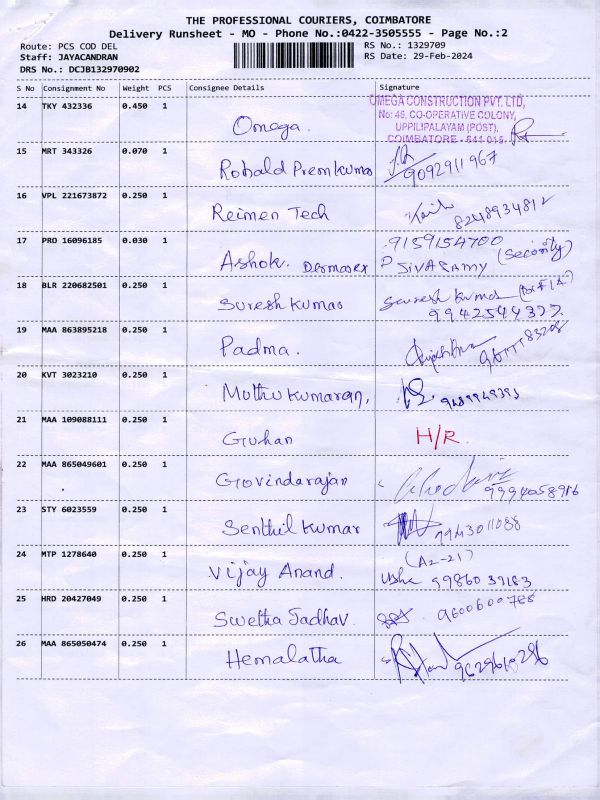 THE PROFESSIONAL COURIERS, COIMBATORE
Delivery Runsheet - MO - Phone No.:0422-3505555 - Page No.:2
Route: PCS COD DEL
RS No.: 1329709
Staff: JAYACANDRAN
RS Date: 29-Feb-2024
DRS No.: DCJB132970902
S No Consignment No Weight PCS Consignee Details Signature
14 TKY 432336 0.450 1
OMEGA CONSTRUCTION PVT. LTD,
No: 46, CO-OPERATIVE COLONY,
UPPILIPALAYAM (POST),
COIMBATORE - 641 015.
Omega.
15 MRT 343326 0.070 1
Robald Premkumar 9092911967
16 VPL 221673872 0.250 1
Reimen Tech 8248934812
17 PRO 16096185 0.030 1
9159154700
Ashok. Dermarex P SIVASAMY (Security)
18 BLR 220682501 0.250 1
Suresh Kumar Suresh Kumar
19 MAA 863895218 0.250 1
Padma.
20 KVT 3023210 0.250 1
Muthukumaran,
21 MAA 109088111 0.250 1
Guhan H/R.
22 MAA 865049601 0.250 1
Govindarajan 9994058916
23 STY 6023559 0.250 1
Senthil Kumar 9943011088
24 MTP 1278640 0.250 1
(A2-21)
Vijay Anand. Usha
25 HRD 20427049 0.250 1
Swetha Jadhav. 9600600788
26 MAA 865050474 0.250 1
Hemalatha